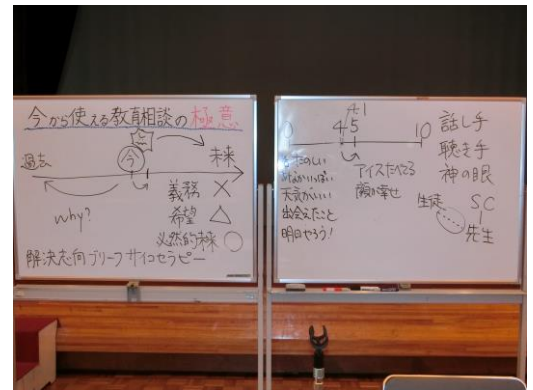 今から使える教育相談の極意
今
過去
未来
why?
義務 ×
希望 △
必然的未来 ○
解決志向ブリーフサイコセラピー
4.1
0
4
5
10
たのしい
天気がいい
出会えたこと
明日やろう!
アイスたべてる
顔が幸せ
話し手
聴き手
神の眼
生徒
SC
先生